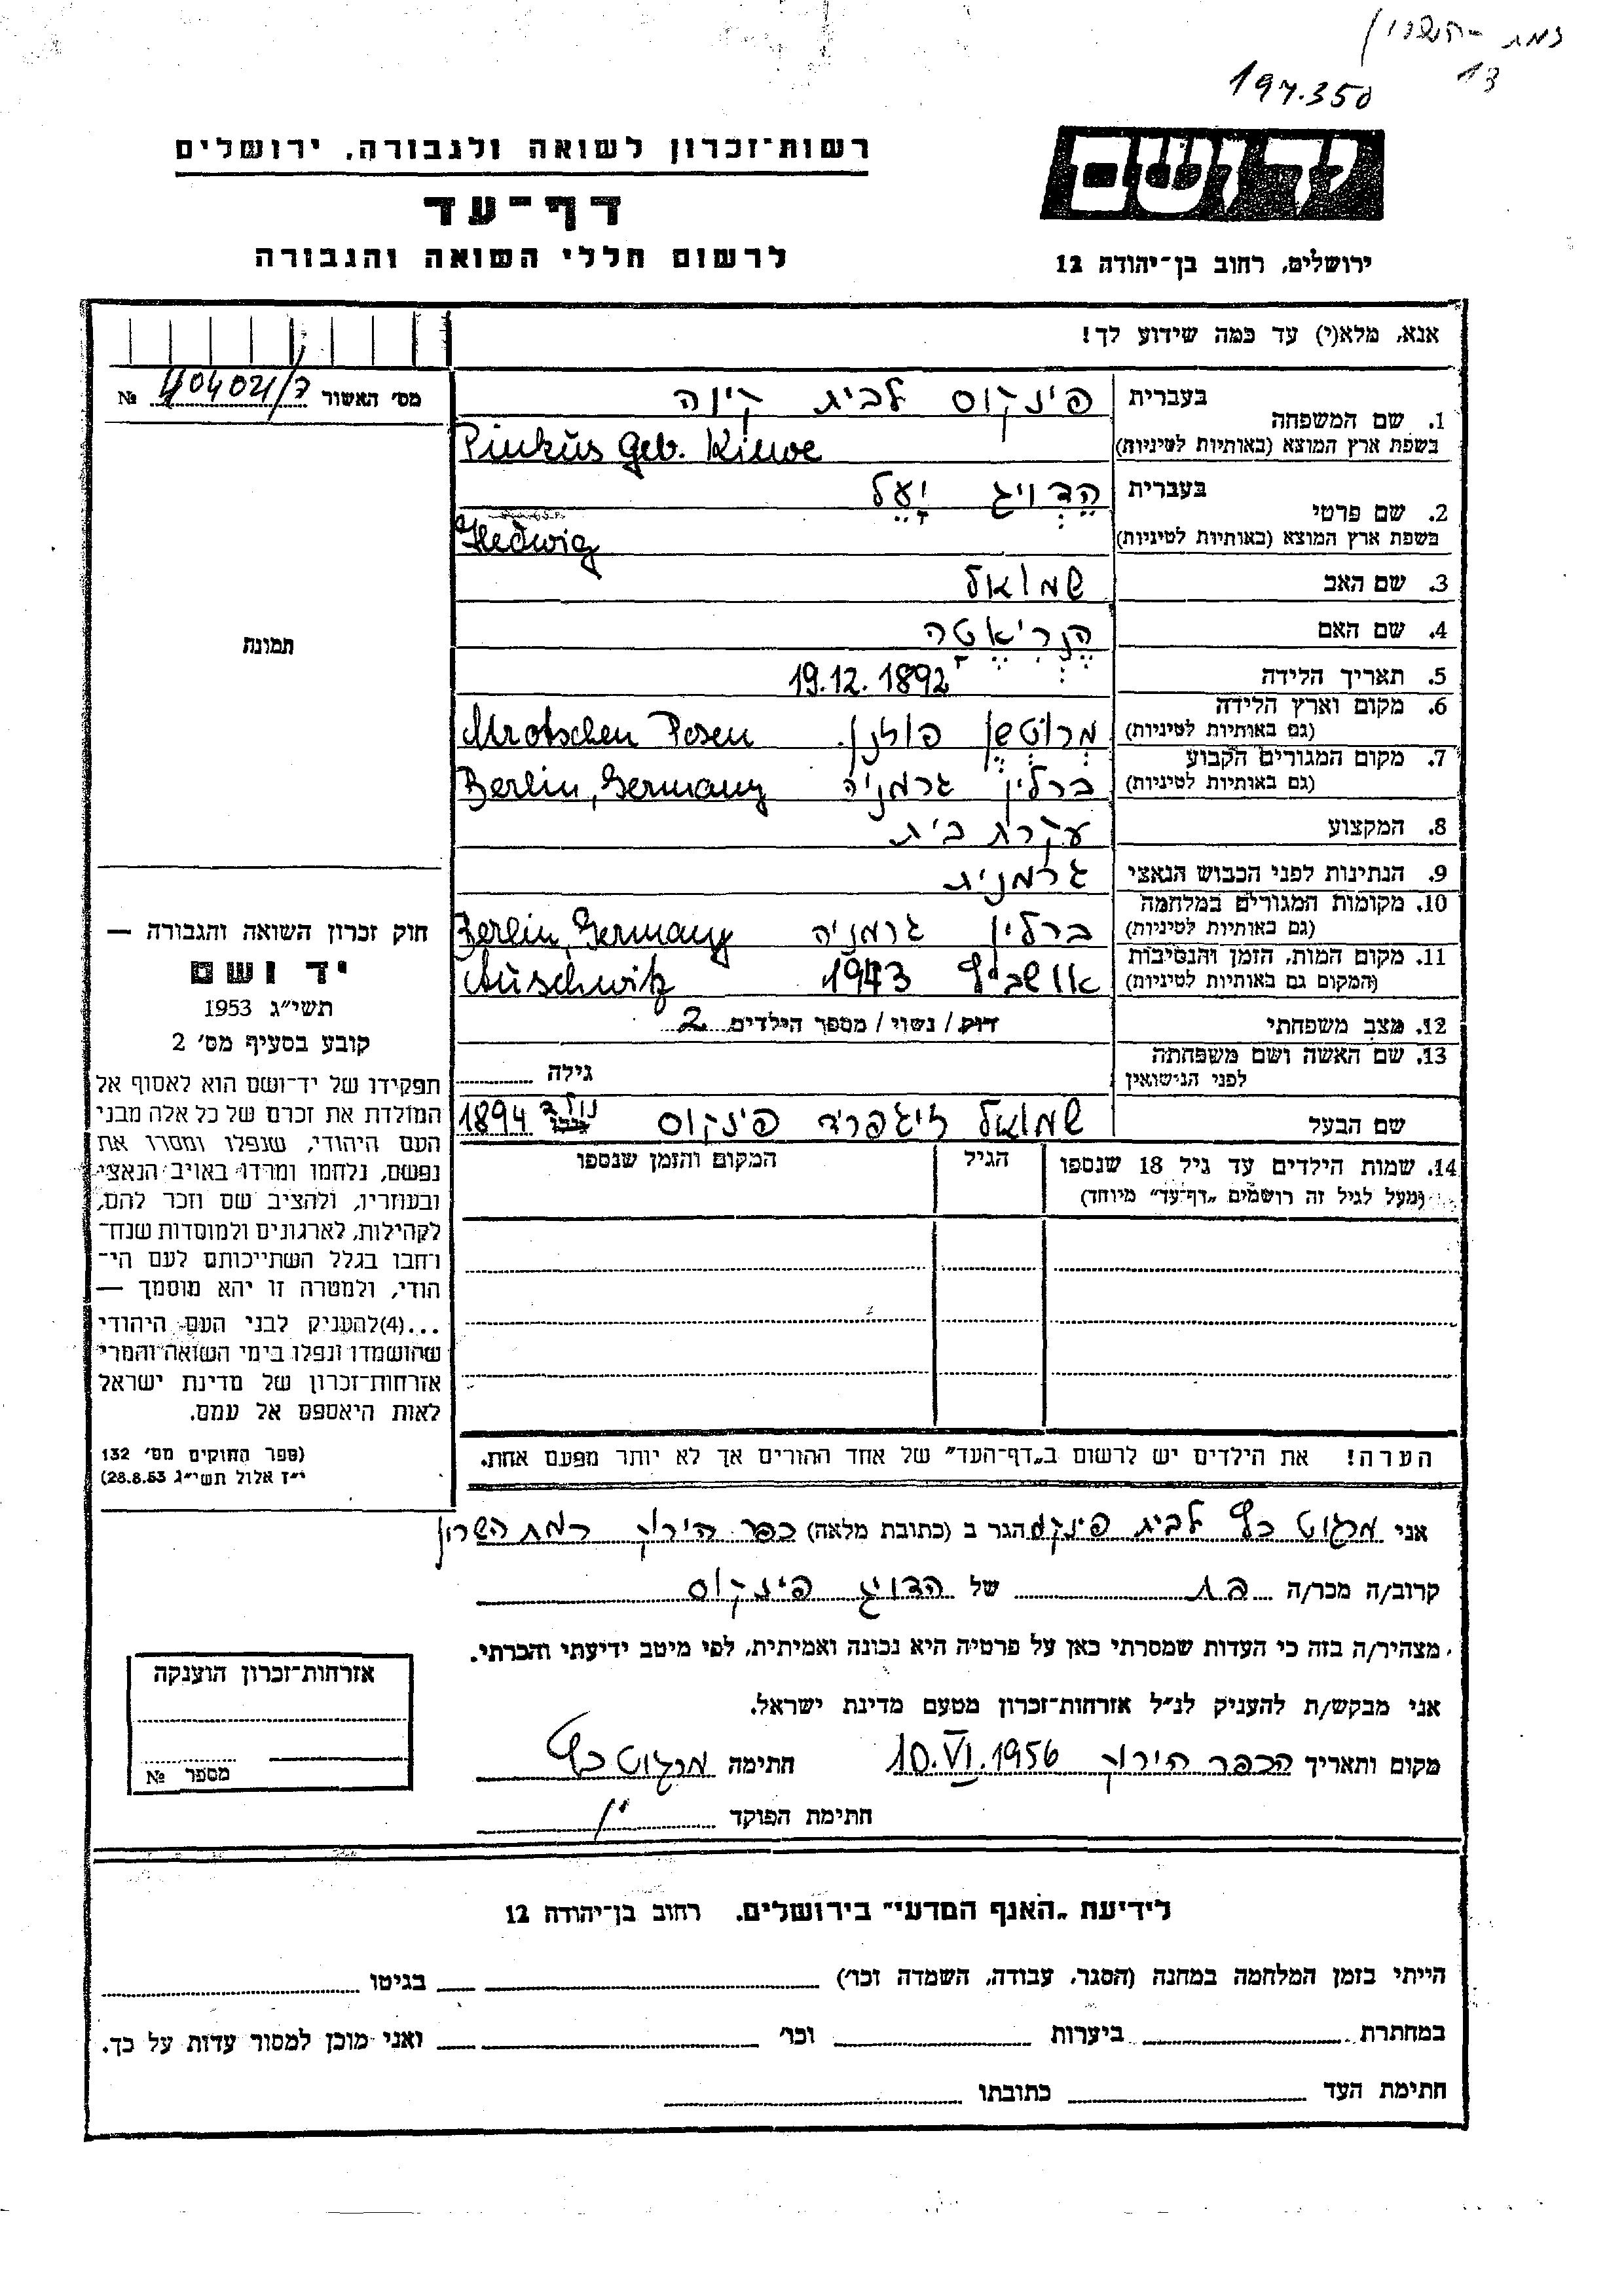 רמת-השרון
13
197.350
יד ושם
ירושלים, רחוב בן־יהודה 12
רשות־זכרון לשואה ולגבורה, ירושלים
דף־עד
לרשום חללי השואה והגבורה
אנא, מלא(י) עד כמה שידוע לך!
מס׳ האשור № 404021/ד
1. שם המשפחה
בעברית פינקוס לבית קיוה
בשפת ארץ המוצא (באותיות לטיניות) Pinkus Geb. Kiewe
2. שם פרטי
בעברית הֶדְויג יָעֵל
בשפת ארץ המוצא (באותיות לטיניות) Hedwig
3. שם האב שמואל
4. שם האם הֶנְרִיאֶטָה
5. תאריך הלידה 19.12.1892
6. מקום וארץ הלידה
(גם באותיות לטיניות) מְרוֹטְשֶן פוזנן. Mrotschen Posen
7. מקום המגורים הקבוע
(גם באותיות לטיניות) ברלין גרמניה Berlin, Germany
8. המקצוע עקרת בית
9. הנתינות לפני הכבוש הנאצי גרמנית
10. מקומות המגורים במלחמה
(גם באותיות לטיניות) ברלין גרמניה Berlin, Germany
11. מקום המות, הזמן והנסיבות
(המקום גם באותיות לטיניות) אושביץ 1943 Auschwitz
12. מצב משפחתי רוק / נשוי / מספר הילדים 2
13. שם האשה ושם משפחתה
לפני הנישואין גילה
שם הבעל שמואל זיגפריד פינקוס נולד 1894
14. שמות הילדים עד גיל 18 שנספו
(מעל לגיל זה רושמים „דף־עד” מיוחד)
הגיל
המקום והזמן שנספו
הערה! את הילדים יש לרשום ב„דף־העד” של אחד ההורים אך לא יותר מפעם אחת.
תמונה
חוק זכרון השואה והגבורה —
יד ושם
תשי״ג 1953
קובע בסעיף מס׳ 2
תפקידו של יד־ושם הוא לאסוף אל
המולדת את זכרם של כל אלה מבני
העם היהודי, שנפלו ומסרו את
נפשם, נלחמו ומרדו באויב הנאצי
ובעוזריו, ולהציב שם וזכר להם,
לקהילות, לארגונים ולמוסדות שנח־
רבו בגלל השתייכותם לעם הי־
הודי, ולמטרה זו יהא מוסמך —
...(4)להעניק לבני העם היהודי
שהושמדו ונפלו בימי השואה והמרי
אזרחות־זכרון של מדינת ישראל
לאות היאספם אל עמם.
(ספר החוקים מס׳ 132
י״ז אלול תשי״ג 28.8.53)
אני מרגוט כץ לבית פינקס הגר ב (כתובת מלאה) כפר הירוק רמת השרון
קרוב/ה מכר/ה בת של הדויג פינקוס
מצהיר/ה בזה כי העדות שמסרתי כאן על פרטיה היא נכונה ואמיתית, לפי מיטב ידיעתי והכרתי.
אני מבקש/ת להעניק לנ״ל אזרחות־זכרון מטעם מדינת ישראל.
מקום ותאריך הכפר הירוק 10.VI.1956 חתימה מרגוט כץ
חתימת הפוקד
אזרחות־זכרון הוענקה
מספר №
לידיעת „האגף המדעי” בירושלים, רחוב בן־יהודה 12
הייתי בזמן המלחמה במחנה (הסגר, עבודה, השמדה וכו׳) בגיטו
במחתרת ביערות וכו׳ ואני מוכן למסור עדות על כך.
חתימת העד כתובתו